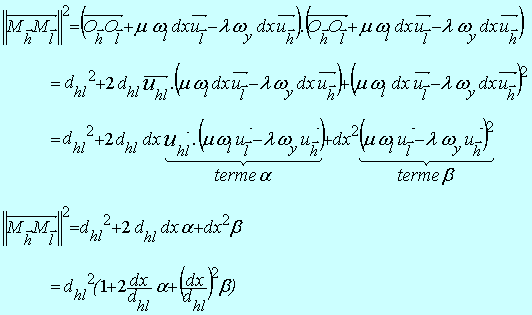 ‖M⃗ₕM⃗ₗ‖² = (OₕOₗ + μ ωₗ dx uₗ − λ ω_y dx uₕ).(OₕOₗ + μ ωₗ dx uₗ − λ ω_y dx uₕ)
= dₕₗ² + 2 dₕₗ uₕₗ.(μ ωₗ dx uₗ − λ ω_y dx uₕ) + (μ ωₗ dx uₗ − λ ω_y dx uₕ)²
= dₕₗ² + 2 dₕₗ dx uₕₗ.(μ ωₗ uₗ − λ ω_y uₕ) + dx² (μ ωₗ uₗ − λ ω_y uₕ)²
terme α terme β
‖MₕMₗ‖² = dₕₗ² + 2 dₕₗ dx α + dx² β
= dₕₗ² (1 + 2 dx/dₕₗ α + (dx/dₕₗ)² β)